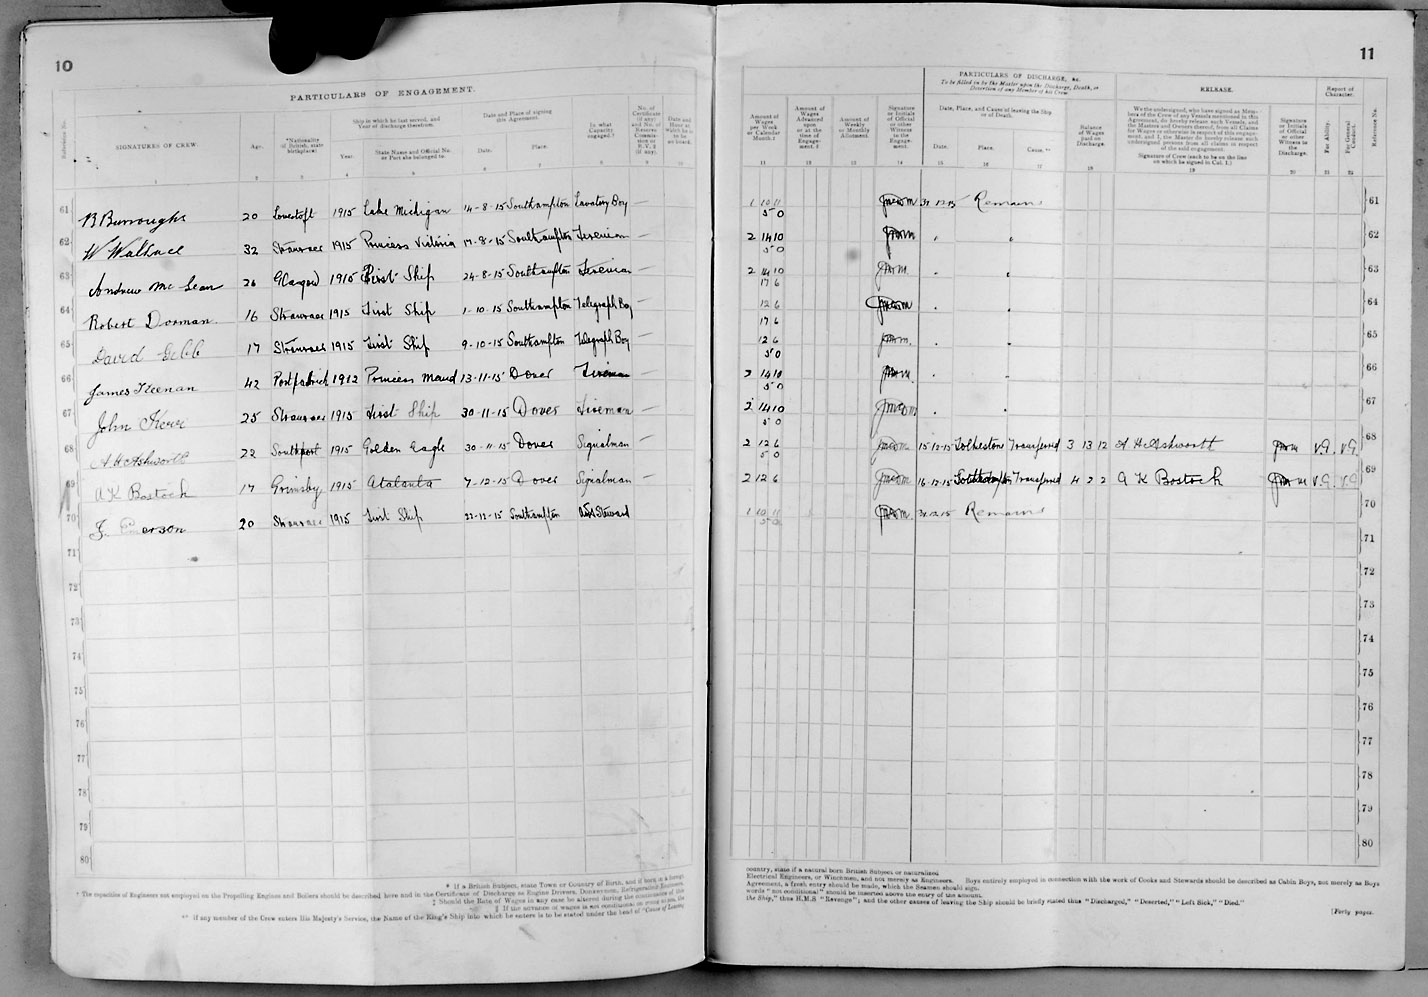 10
PARTICULARS OF ENGAGEMENT.
Reference No.
SIGNATURES OF CREW
Age.
*Nationality (if British, state birthplace)
Ship in which he last served, and Year of discharge therefrom.
Year.
State Name and Official No. or Port she belonged to.
Date and Place of signing this Agreement.
Date.
Place.
In what Capacity engaged.†
No. of Certificate (if any) and No. of Reserve Commission or R.V. 2 (if any).
Date and Hour at which he is to be on board.
1 2 3 4 5 6 7 8 9 10
61 B Burroughs 20 Lowestoft 1915 Lake Michigan 14-8-15 Southampton Lavatory Boy —
62 W Wallace 32 Stranraer 1915 Princess Victoria 17-8-15 Southampton Fireman —
63 Andrew Mc Lean 26 Glasgow 1915 First Ship 24-8-15 Southampton Fireman —
64 Robert Dorman 16 Stranraer 1915 First Ship 1-10-15 Southampton Telegraph Boy —
65 David Gibb 17 Stranraer 1915 First Ship 9-10-15 Southampton Telegraph Boy —
66 James Keenan 42 Portpatrick 1912 Princess Maud 13-11-15 Dover Fireman —
67 John Kerr 25 Stranraer 1915 First Ship 30-11-15 Dover Fireman —
68 A H Ashworth 22 Southport 1915 Golden Eagle 30-11-15 Dover Signalman —
69 A K Bostock 17 Grimsby 1915 Atalanta 7-12-15 Dover Signalman —
70 J. Emerson 20 Stranraer 1915 First Ship 22-12-15 Southampton Asst Steward
71
72
73
74
75
76
77
78
79
80
* If a British Subject, state Town or Country of Birth, and if born in a foreign
† The capacities of Engineers not employed on the Propelling Engines and Boilers should be described here and in the Certificate of Discharge as Engine Drivers, Donkeymen, Refrigerating Engineers,
‡ Should the Rate of Wages in any case be altered during the continuance of this
§ If the advance of wages is not conditional on going to sea, the
** If any member of the Crew enters His Majesty's Service, the Name of the King's Ship into which he enters is to be stated under the head of "Cause of Leaving
11
Amount of Wages per Week or Calendar Month.‡
Amount of Wages Advanced upon or at the time of Engagement.§
Amount of Weekly or Monthly Allotment.
Signature or Initials of Official or other Witness to the Engagement.
PARTICULARS OF DISCHARGE, &c.
To be filled in by the Master upon the Discharge, Death, or Desertion of any Member of his Crew
Date, Place, and Cause of leaving the Ship or of Death.
Date.
Place.
Cause.**
Balance of Wages paid on Discharge.
RELEASE.
We the undersigned, who have signed as Members of the Crew of any Vessels mentioned in this Agreement, do hereby release such Vessels, and the Masters and Owners thereof, from all Claims for Wages or otherwise in respect of this engagement, and I, the Master do hereby release such undersigned persons from all claims in respect of the said engagement.
Signature of Crew (each to be on the line on which he signed in Col. 1.)
Signature or Initials of Official or other Witness to the Discharge.
Report of Character.
For Ability.
For General Conduct.
Reference No.
11 12 13 14 15 16 17 18 19 20 21 22
1 10 11 31 12 15 Remains 61
5 0
2 14 10 62
5 0
2 14 10 63
17 6
12 6 64
17 6
12 6 65
5 0
2 14 10 66
5 0
2 14 10 67
5 0
2 12 6 15-12-15 Folkestone Transferred 3 13 12 A H Ashworth V.G. V.G. 68
5 0
2 12 6 16-12-15 Southampton Transferred 4 2 2 A K Bostock V.G. V.G. 69
1 10 11 31 12 15 Remains 70
5 0
71
72
73
74
75
76
77
78
79
80
country, state if a natural born British Subject or naturalized
Electrical Engineers, or Winchmen, and not merely as Engineers. Boys entirely employed in connection with the work of Cooks and Stewards should be described as Cabin Boys, not merely as Boys
Agreement, a fresh entry should be made, which the Seamen should sign.
words "not conditional" should be inserted above the entry of the amount.
the Ship," thus H.M.S "Revenge"; and the other causes of leaving the Ship should be briefly stated thus "Discharged," "Deserted," "Left Sick," "Died."
[Forty pages.